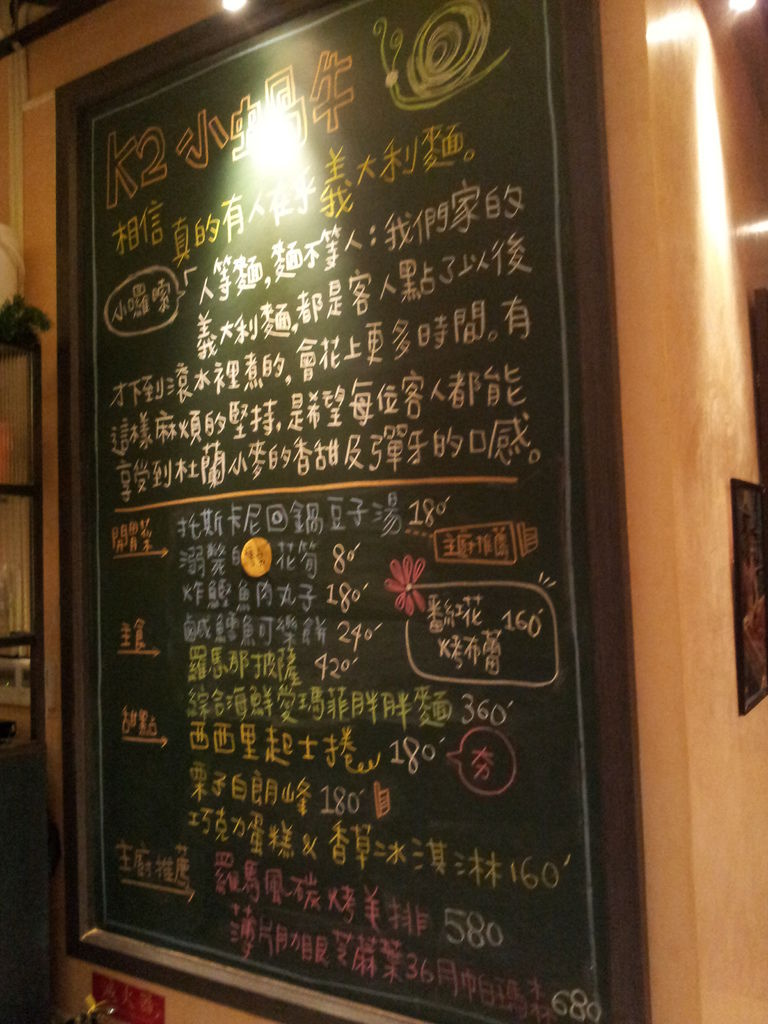 K2 小蝸牛
相信真的有人在乎義大利麵。
小囉嗦
人等麵,麵不等人:我們家的
義大利麵,都是客人點了以後
才下到滾水裡煮的,會花上更多時間。有
這樣麻煩的堅持,是希望每位客人都能
享受到杜蘭小麥的香甜及彈牙的口感。
開胃菜
托斯卡尼回鍋豆子湯 180
主廚推薦
溺斃的 花筍 80
炸鰹魚肉丸子 180
鹹鱈魚可樂餅 240
番紅花
烤布蕾 160
主食
羅馬那披薩 420
綜合海鮮愛瑪菲胖胖麵 360
甜點
西西里起士捲 180
夯
栗子白朗峰 180
巧克力蛋糕 & 香草冰淇淋 160
主廚推薦
羅馬風碳烤羊排 580
薄片肋眼芝麻葉36月帕瑪森 680
滅火器